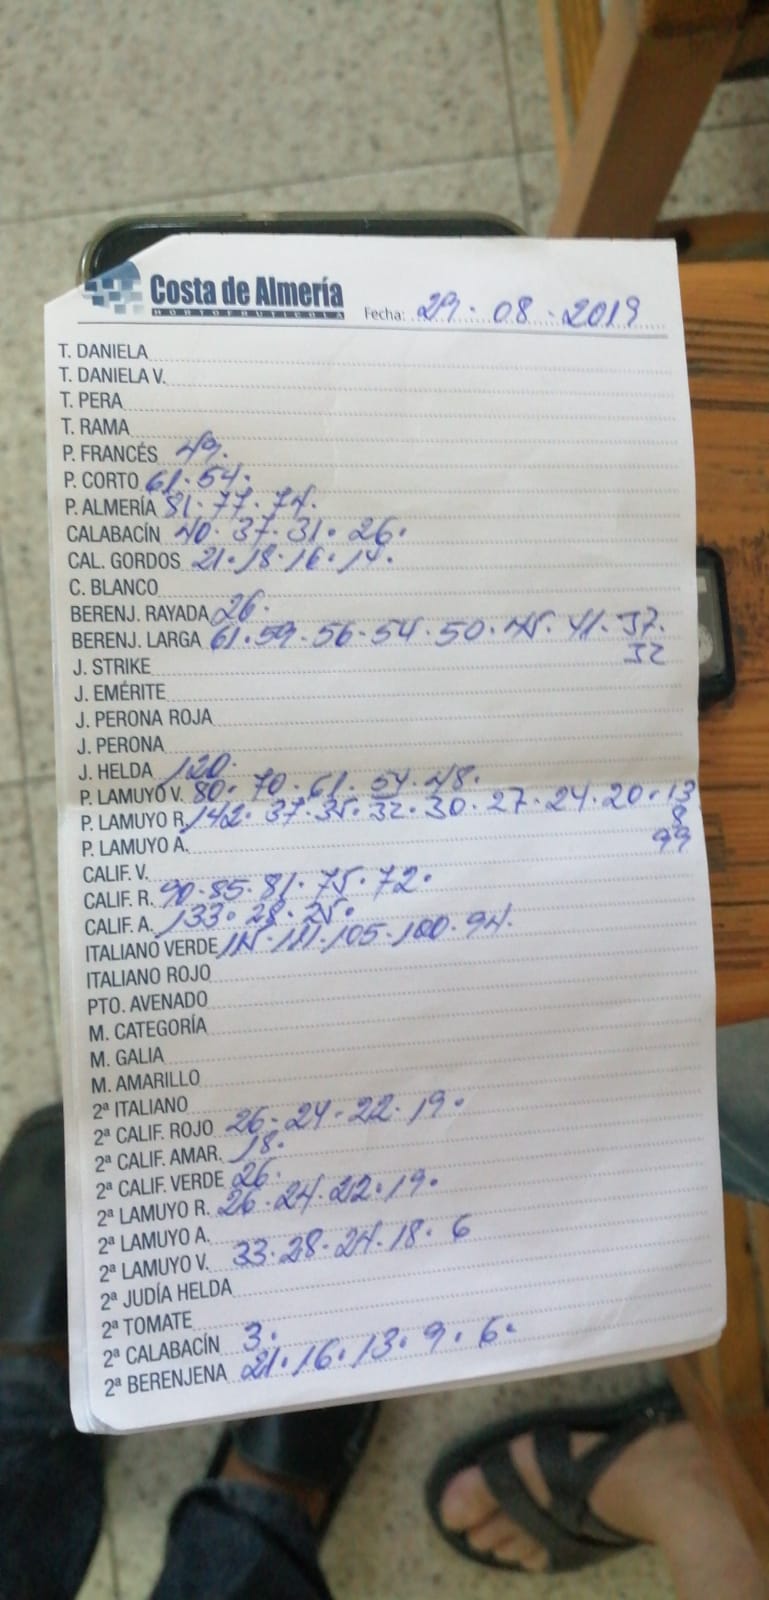 Costa de Almería
HORTOFRUTICOLA
Fecha: 29 . 08 . 2019
T. DANIELA
T. DANIELA V.
T. PERA
T. RAMA
P. FRANCÉS 49.
P. CORTO 61. 54.
P. ALMERÍA 81. 77. 74.
CALABACÍN 40. 37. 31. 26.
CAL. GORDOS 21. 18. 16. 14.
C. BLANCO
BERENJ. RAYADA 26.
BERENJ. LARGA 61. 59. 56. 54. 50. 45. 41. 37.
32
J. STRIKE
J. EMÉRITE
J. PERONA ROJA
J. PERONA
J. HELDA 120.
P. LAMUYO V. 80. 70. 61. 54. 48.
P. LAMUYO R. 142. 37. 35. 32. 30. 27. 24. 20. 13
8
99
P. LAMUYO A.
CALIF. V.
CALIF. R. 90. 85. 81. 75. 72.
CALIF. A. 133. 28. 25.
ITALIANO VERDE 115. 111. 105. 100. 94.
ITALIANO ROJO
PTO. AVENADO
M. CATEGORÍA
M. GALIA
M. AMARILLO
2ª ITALIANO
2ª CALIF. ROJO 26. 24. 22. 19.
2ª CALIF. AMAR. 18.
2ª CALIF. VERDE 26.
2ª LAMUYO R. 26. 24. 22. 19.
2ª LAMUYO A.
2ª LAMUYO V. 33. 28. 24. 18. 6
2ª JUDÍA HELDA
2ª TOMATE
2ª CALABACÍN 3.
2ª BERENJENA 21. 16. 13. 9. 6.